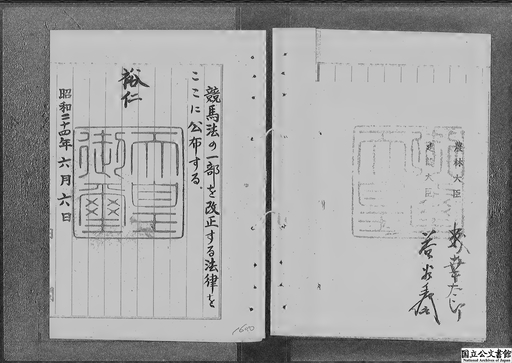 競馬法の一部を改正する法律を
ここに公布する、
裕仁
天皇
御璽
昭和二十四年六月六日
農林大臣
大臣
1600
国立公文書館
National Archives of Japan